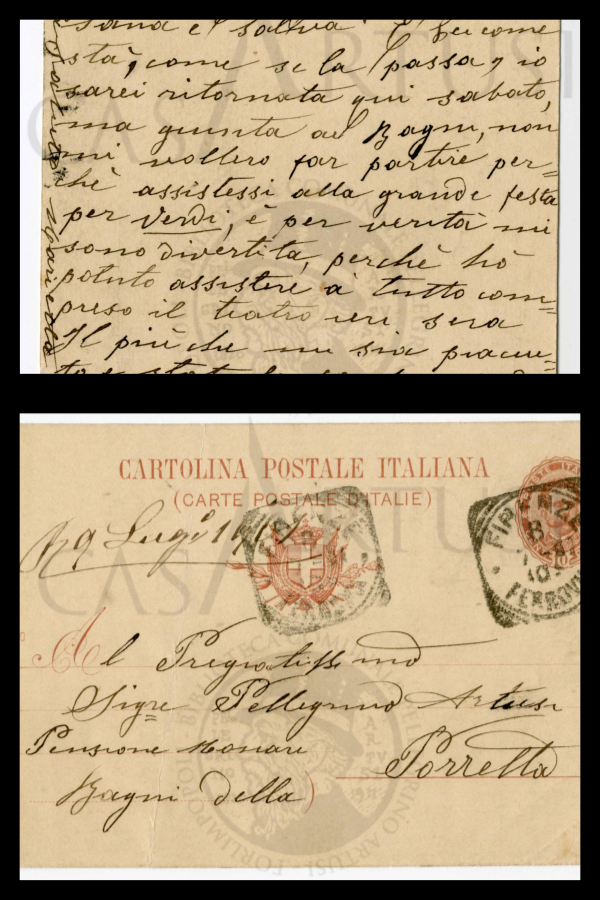 sana e salva. E Lei come
stà, come se la passa, io
sarei ritornata qui sabato,
ma giunta ai Bagni, non
mi vollero far partire per=
chè assistessi alla grande festa
per Verdi, é per verità mi
sono divertita, perchè hò
potuto assistere à tutto com=
preso il teatro ieri sera
Il più che mi sia piaciu=
CARTOLINA POSTALE ITALIANA
(CARTE POSTALE D'ITALIE)
29 Lugº 19
FIRENZE
FERROVIA
Al Pregiatissimo
Sigre Pellegrino Artusi
Pensione Monari
Porretta
Bagni della)
CASA ARTUSI